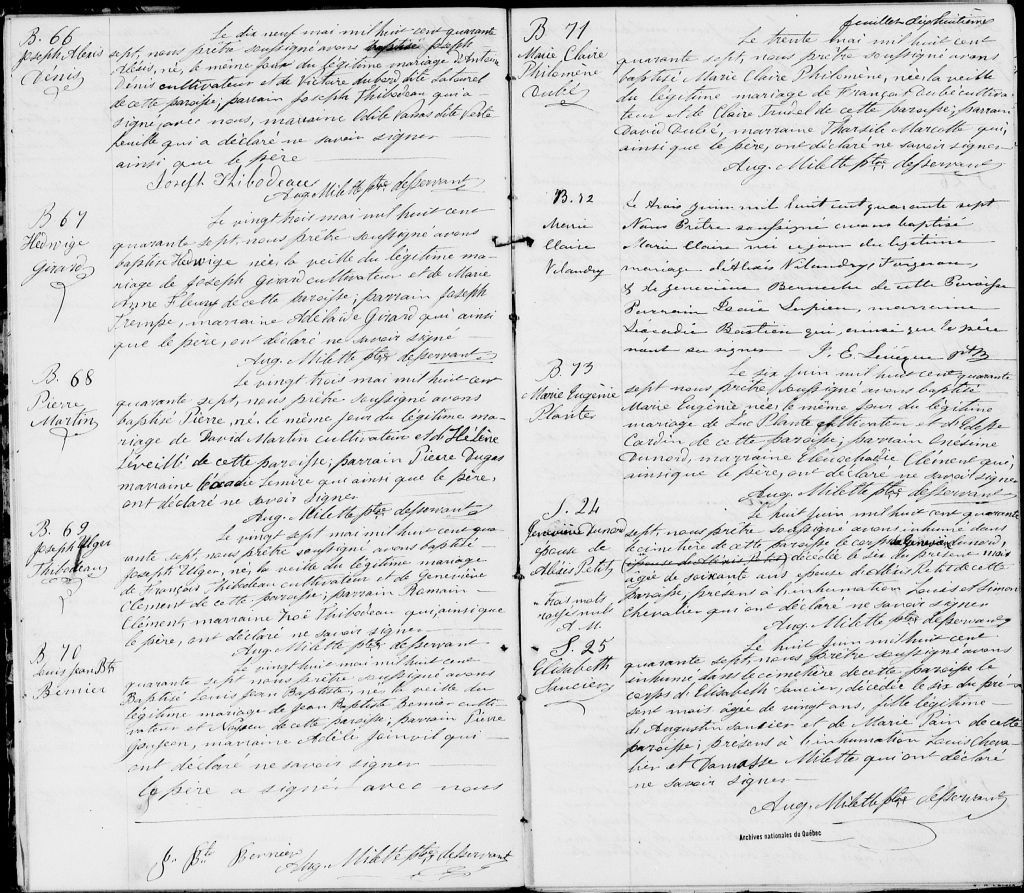 B. 66
Joseph Alexis
Denis
Le dix neuf mai mil huit cent quarante
sept, nous prêtre soussigné avons baptisé Joseph
Alexis, né, le même jour du légitime mariage d'Antoine
Denis cultivateur et de Victoire dubord dite
de cette paroisse; parrain Joseph Thibodeau qui a
signé avec nous, marraine Odile dite
feuille qui a déclaré ne savoir signer
ainsi que le père
Joseph Thibodeau
Aug. Milette ptre desservant
B 67
Hedwige
Girard
Le vingt trois mai mil huit cent
quarante sept, nous prêtre soussigné avons
baptisé Hedwige née, la veille du légitime ma-
riage de Joseph Girard cultivateur et de Marie
Anne Fleury de cette paroisse; parrain Joseph
Trempe, marraine Adélaide Girard qui ainsi
que le père, ont déclaré ne savoir signé
Aug. Milette ptre desservant
B. 68
Pierre
Martin
Le vingt trois mai mil huit cent
quarante sept, nous prêtre soussigné avons
baptisé Pierre, né, le même jour du légitime ma-
riage de David Martin cultivateur et d'Hélène
Léveillé de cette paroisse; parrain Pierre Dugas
marraine Léocadie Lemire qui ainsi que le père,
ont déclaré ne savoir signer
Aug. Milette ptre desservant
B. 69
Joseph Ulger
Thibodeau
Le vingt sept mai mil huit cent qua
rante sept, nous prêtre soussigné avons baptisé
Joseph Ulger, né, la veille du légitime mariage
de François Thibodeau cultivateur et de Geneviève
Clément de cette paroisse; parrain Romain
Clément, marraine Zoë Thibodeau qui, ainsi que
le père, ont déclaré ne savoir signer
Aug. Milette ptre desservant
B. 70
Louis Jean Bte
Bernier
Le vingt huit mai mil huit cent
quarante sept nous prêtre soussigné avons
Baptisé Louis Jean Baptiste, né, la veille du
légitime mariage de Jean Baptiste Bernier culti
vateur et de cette paroisse; parrain Pierre
, marraine Adèle qui
ont déclaré ne savoir signer
le père a signé avec nous
J. Bte Bernier
Aug. Milette ptre desservant
feuillet dixhuitième
B 71
Marie Claire
Philomène
Dubé
Le trente mai mil huit cent
quarante sept, nous prêtre soussigné avons
baptisé Marie Claire Philomène, née, la veille
du légitime mariage de François Dubé cultiva-
teur et de Claire Trudel de cette paroisse; parrain
David Dubé, marraine Tharsile Marcotte qui,
ainsi que le père, ont déclaré ne savoir signer
Aug. Milette ptre desservant
B. 72
Marie
Claire
Vilandry
Le trois Juin mil huit cent quarante sept
Nous Prêtre soussigné avons baptisé
Marie Claire née ce jour du légitime
mariage d'Alexis Vilandry, Forgeron,
& de Geneviève de cette Paroisse
Parrain Lupien, marraine
Léocadie Bastien qui, ainsi que le père
n'ont su signer — J. E. Lévêque ptre
B. 73
Marie Eugénie
Plante
Le six Juin mil huit cent quarante
sept nous prêtre soussigné avons baptisé
Marie Eugénie née, le même jour du légitime
mariage de Luc Plante cultivateur et d'
Cardin de cette paroisse; parrain Onésime
Dunord, marraine Clément qui,
ainsi que le père, ont déclaré ne savoir signer
Aug. Milette ptre desservant
S. 24
Geneviève Dunord
épouse de
Alexis Petit
trois mots
rayés nuls
A. M.
Le huit juin mil huit cent quarante
sept, nous prêtre soussigné avons inhumé dans
le cimetière de cette paroisse le corps de Geneviève Dunord,
décédée le six du présent mois
agée de soixante ans, épouse d'Alexis Petit de cette
paroisse, présens à l'inhumation Louis et Simon
Chevalier qui ont déclaré ne savoir signer
Aug. Milette ptre desservant
S. 25
Elisabeth
Saucier
Le huit Juin mil huit cent
quarante sept, nous prêtre soussigné avons
inhumé dans le cimetière de cette paroisse le
corps d'Elisabeth Saucier, décédée le six du pré-
sent mois agée de vingt ans, fille légitime
d'Augustin Saucier et de Marie de cette
paroisse; présens à l'inhumation Louis Cheva-
lier et Damasse Milette qui ont déclaré
ne savoir signer
Aug. Milette ptre desservant
Archives nationales du Québec